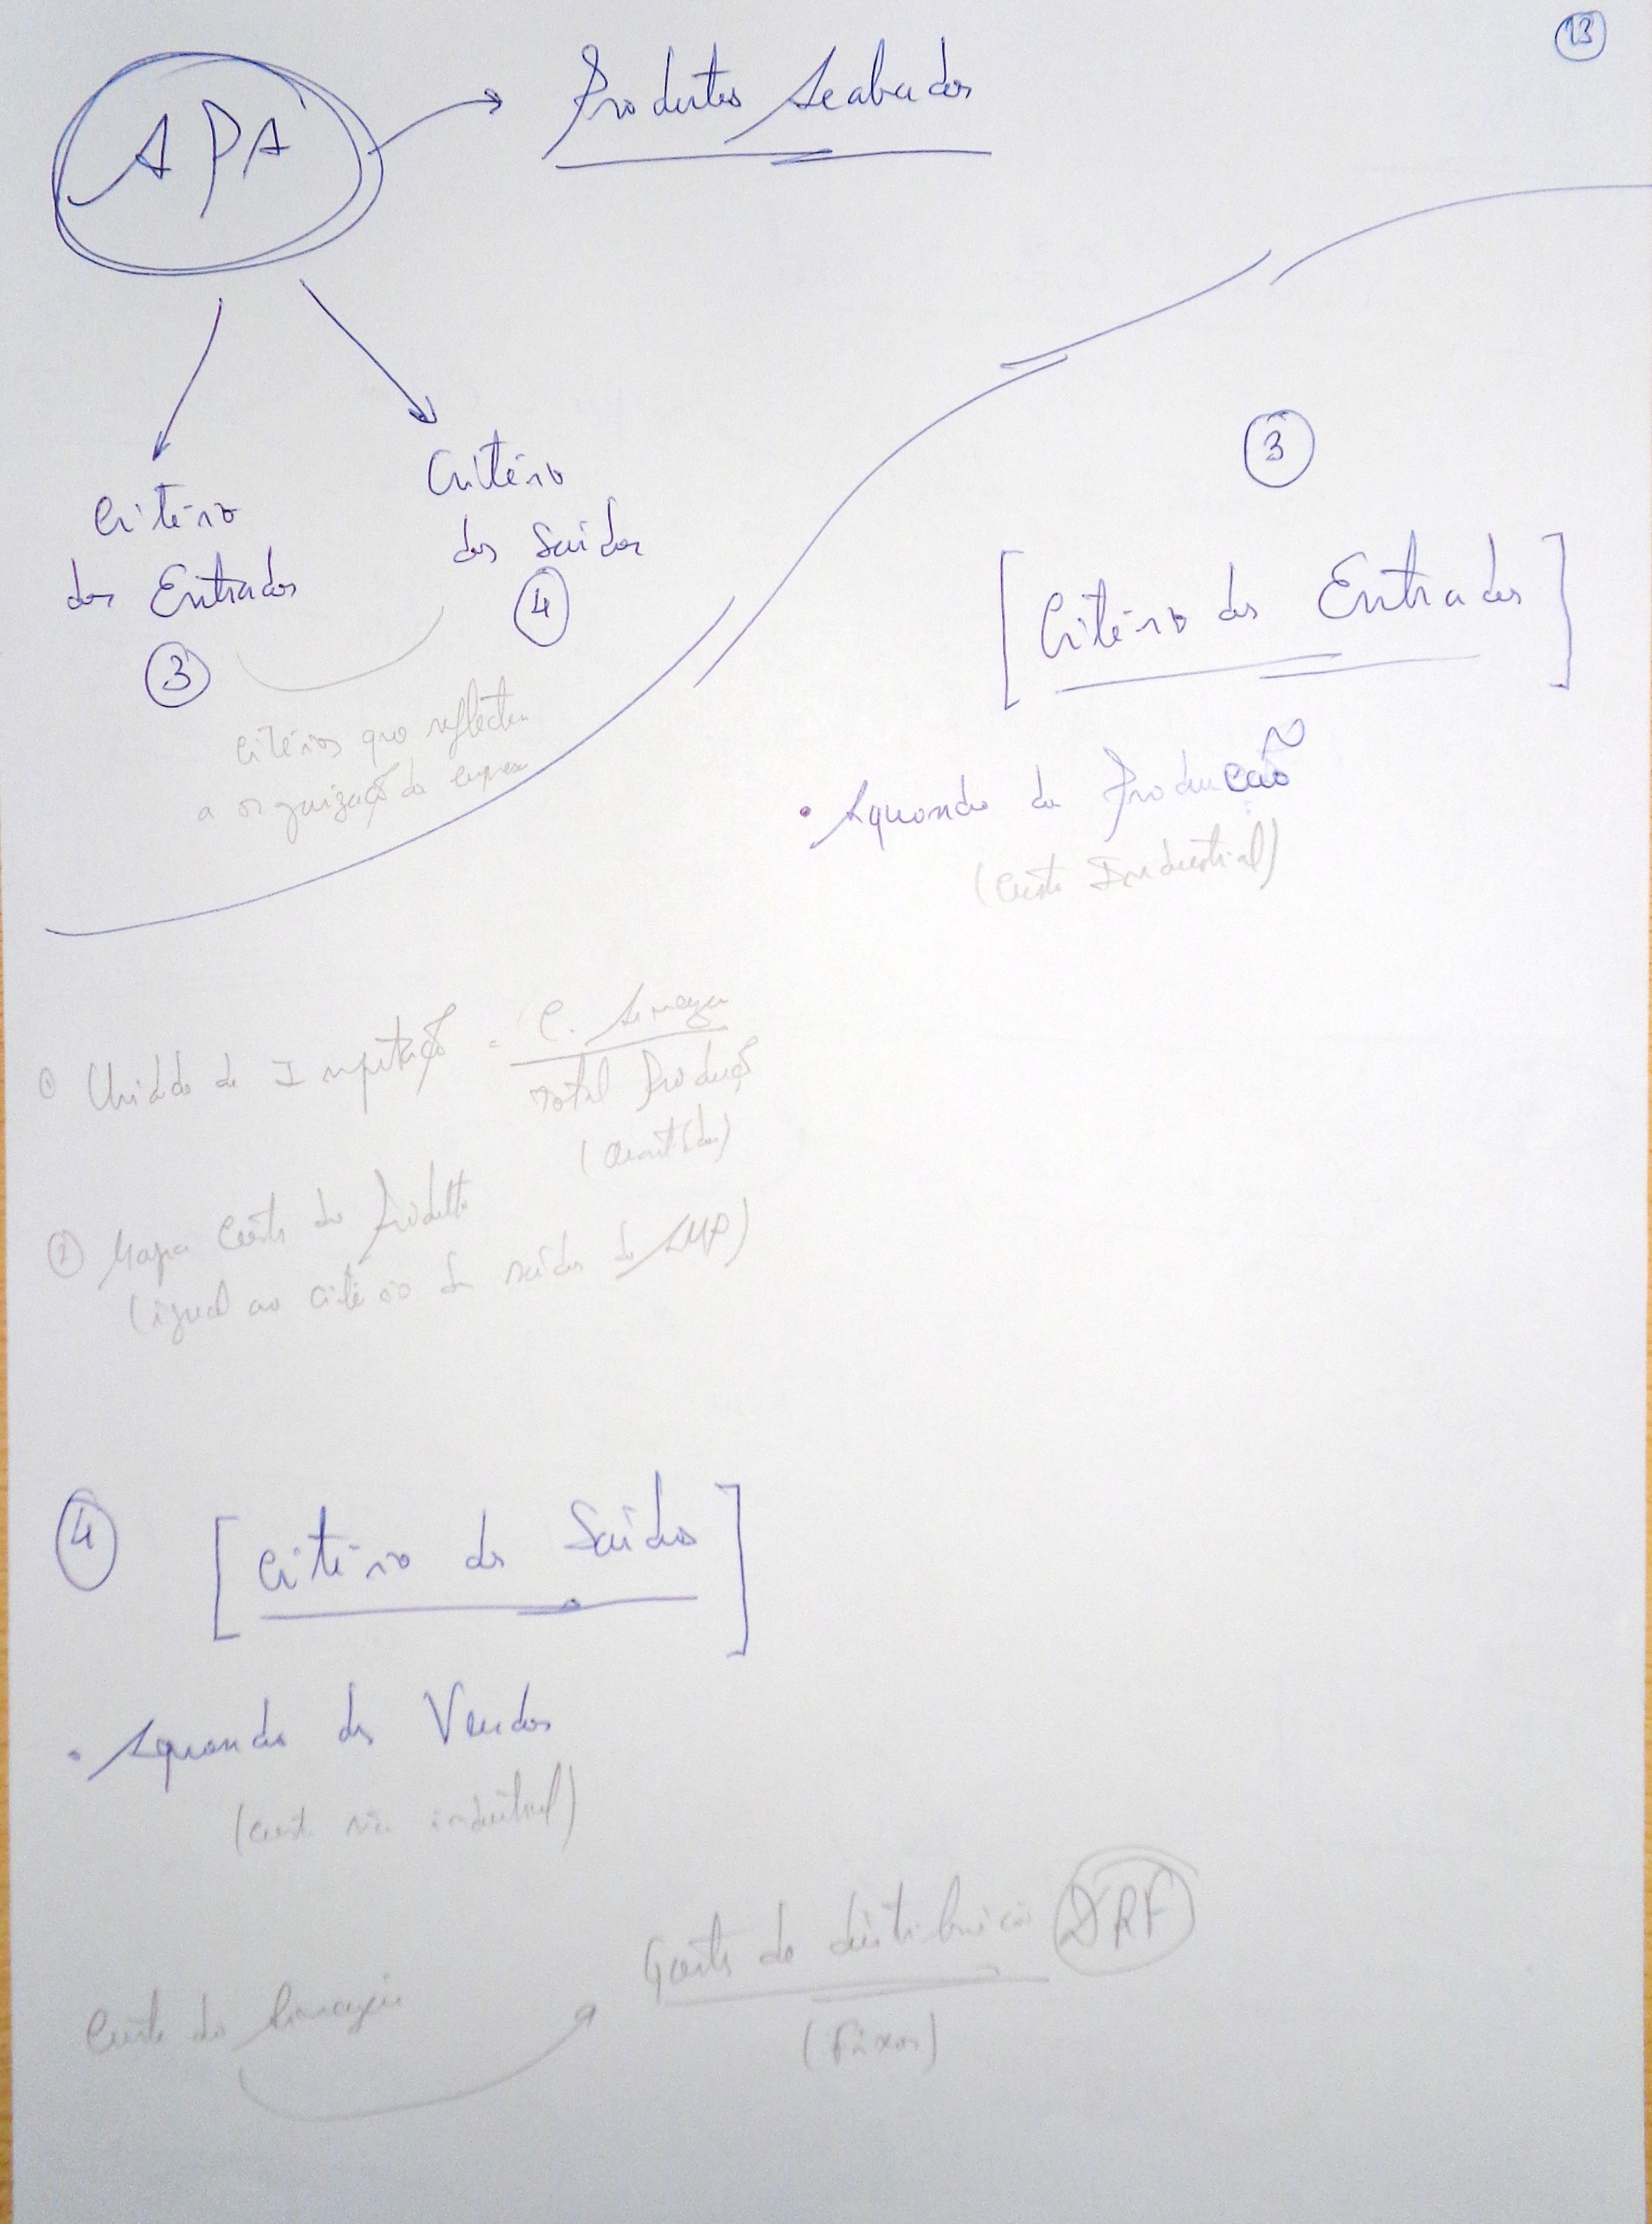 13
APA
Produtos Acabados
Critério
das Entradas
3
Critério
das Saídas
4
critérios que reflectem
a organização da empresa
3
[Critério das Entradas]
• Aquando da Produção
(Custo Industrial)
1 Unidade de Imputação = C. Armazém
Total Produção
(Quantidades)
2 Mapa Custo do Produto
(igual ao critério das saídas do AMP)
4
[Critério das Saídas]
• Aquando das Vendas
(Custo não industrial)
Custo do Armazém
Gastos de distribuição DRF
(Fixos)